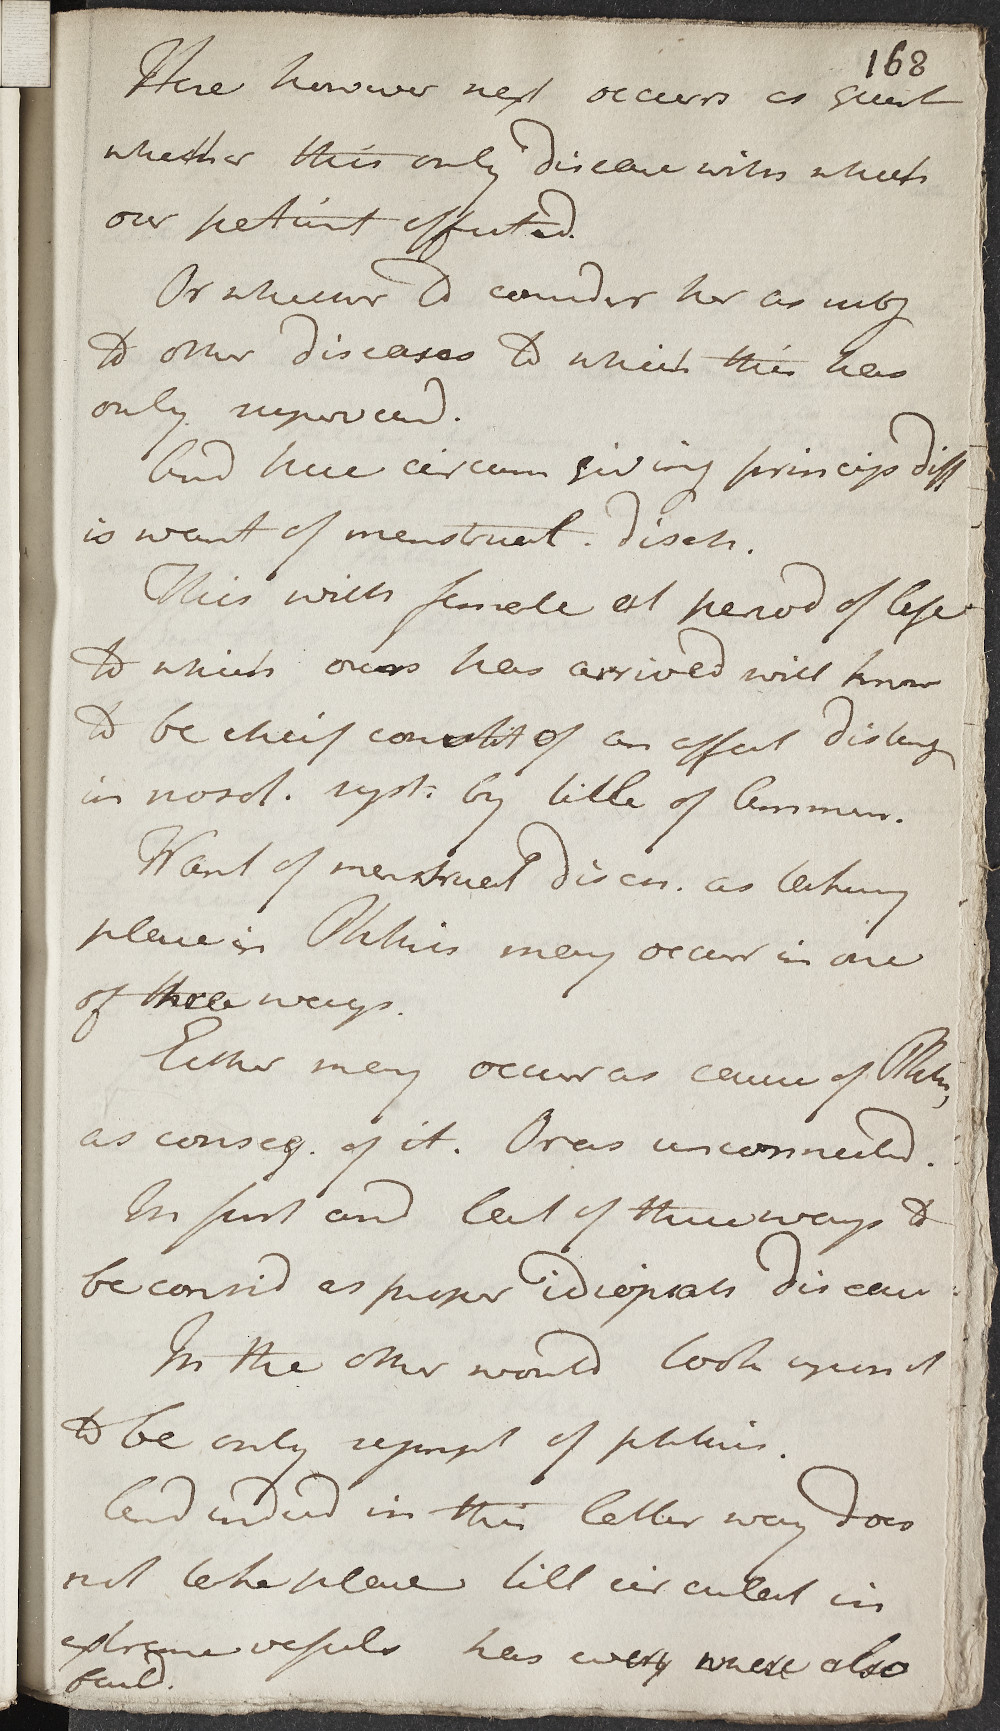 168
Here however next occurs as quest
whether this only disease with which
our patient affected.
Or whether to consider her as subj
to other diseases to which this has
only superveend.
And here circum giving princip diff
is want of menstrual. disch.
This with female at period of life
to which ours has arrived will know
to be cheif constit of an affect disting
in nosol. syst. by title of Amen.
Want of menstrual disch. as taking
place in Phthis may occur in one
of three ways.
Either may occur as cause of Phthis,
as conseq. of it. Or as unconnected.
In first and last of these ways to
be consid as proper idiopath disease
In the other would look upon it
to be only sympt of phthisis.
And indeed in this latter way does
not take place till circulat in
extreme vessels has every where also
faild.